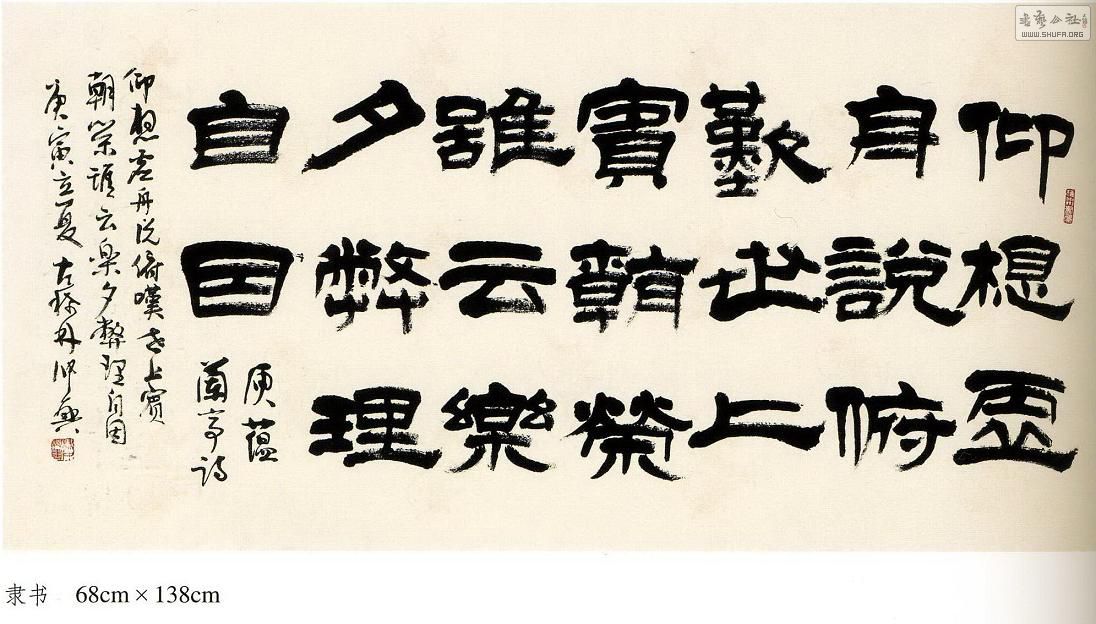 仰想虛
舟說俯
歎世上
賓朝榮
雖云樂
夕弊理
自因
庾蘊
蘭亭詩
仰想虛舟说俯嘆世上賓
朝榮雖云樂夕弊理自因
庚寅立夏
书艺公社
WWW.SHUFA.ORG
隶书 68cm × 138cm